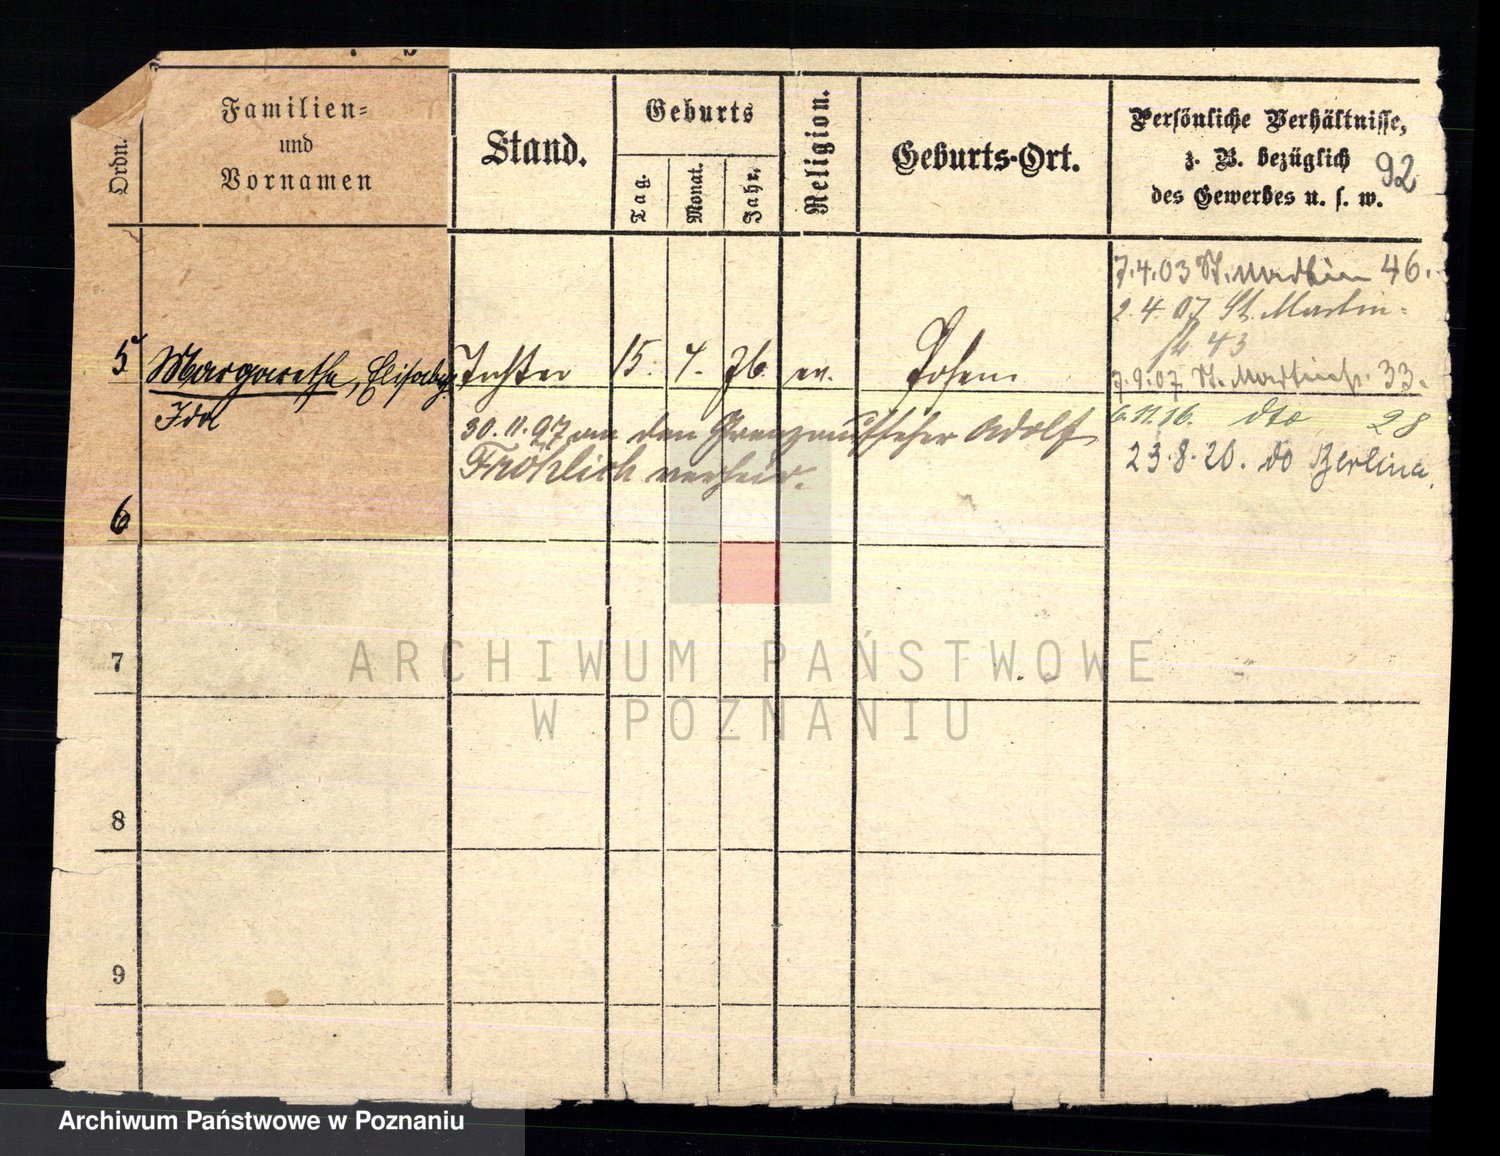 Ordn.
Familien-
und
Vornamen
Stand.
Geburts
Tag.
Monat.
Jahr.
Religion.
Geburts-Ort.
Persönliche Verhältnisse,
z. B. bezüglich
des Gewerbes u. s. w.
92
7.4.03 St. Martin 46.
2.4.07 St. Martin-
43
7.9.07. St. Martinstr. 33.
6.11.16. dto 28
23.8.20. do Berlina.
5 Margarethe, Elisabeth Tochter 15. 4. 76. ev. Posen
Ida
30.11.97 an den Grenzaufseher Adolf
Fröhlich verheir.
6
7
8
9
ARCHIWUM PAŃSTWOWE
W POZNANIU
Archiwum Państwowe w Poznaniu